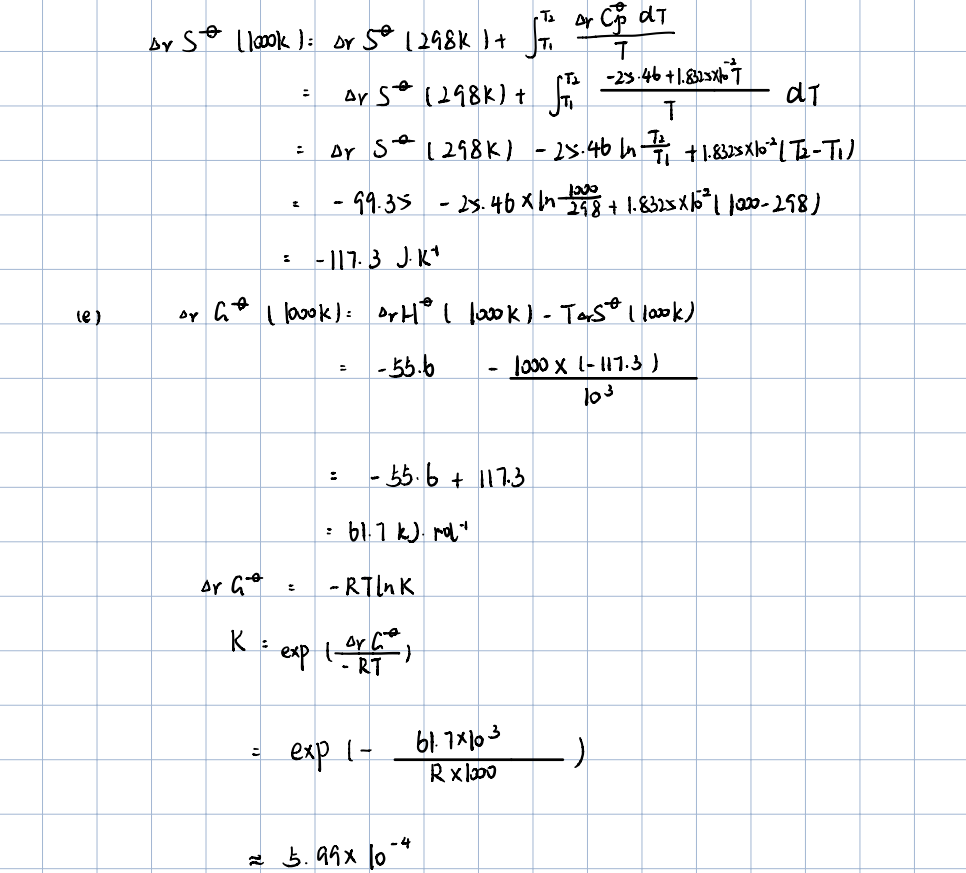 Δr S^⊖ (1000K): Δr S^⊖ (298K) + ∫_{T1}^{T2} Δr Cp^⊖ dT / T
= Δr S^⊖ (298K) + ∫_{T1}^{T2} (-25.46 + 1.8325×10^-2 T) / T dT
= Δr S^⊖ (298K) - 25.46 ln T2/T1 + 1.8325×10^-2 (T2 - T1)
= -99.35 - 25.46 × ln 1000/298 + 1.8325×10^-2 (1000 - 298)
= -117.3 J·K^-1
(e) Δr G^⊖ (1000K) = Δr H^⊖ (1000K) - TΔrS^⊖ (1000K)
= -55.6 - 1000 × (-117.3) / 10^3
= -55.6 + 117.3
= 61.7 kJ·mol^-1
Δr G^⊖ = -RTlnK
K = exp (Δr G^⊖ / -RT)
= exp (- 61.7×10^3 / R×1000)
≈ 5.99× 10^-4